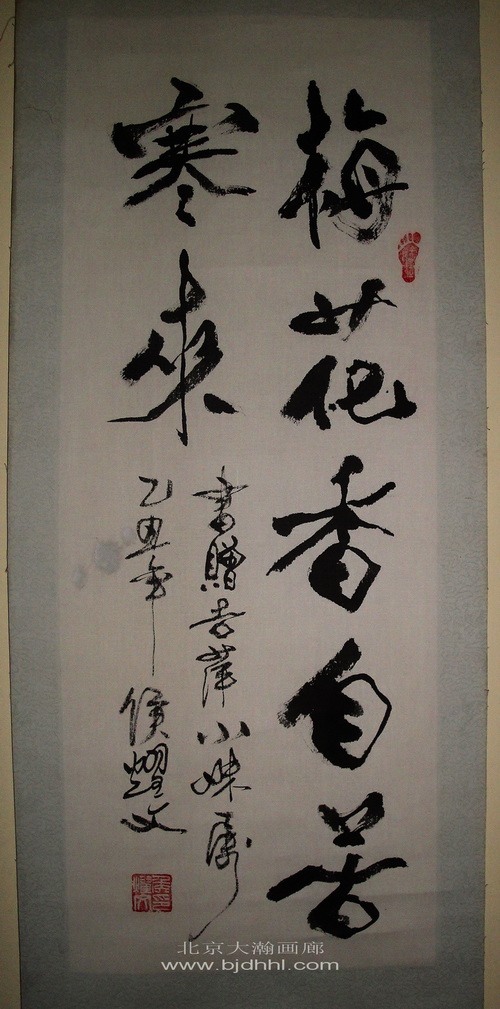 梅花香自苦
寒来
书赠吉萍小妹属
乙丑年 侯耀文
北京大瀚画廊
www.bjdhhl.com